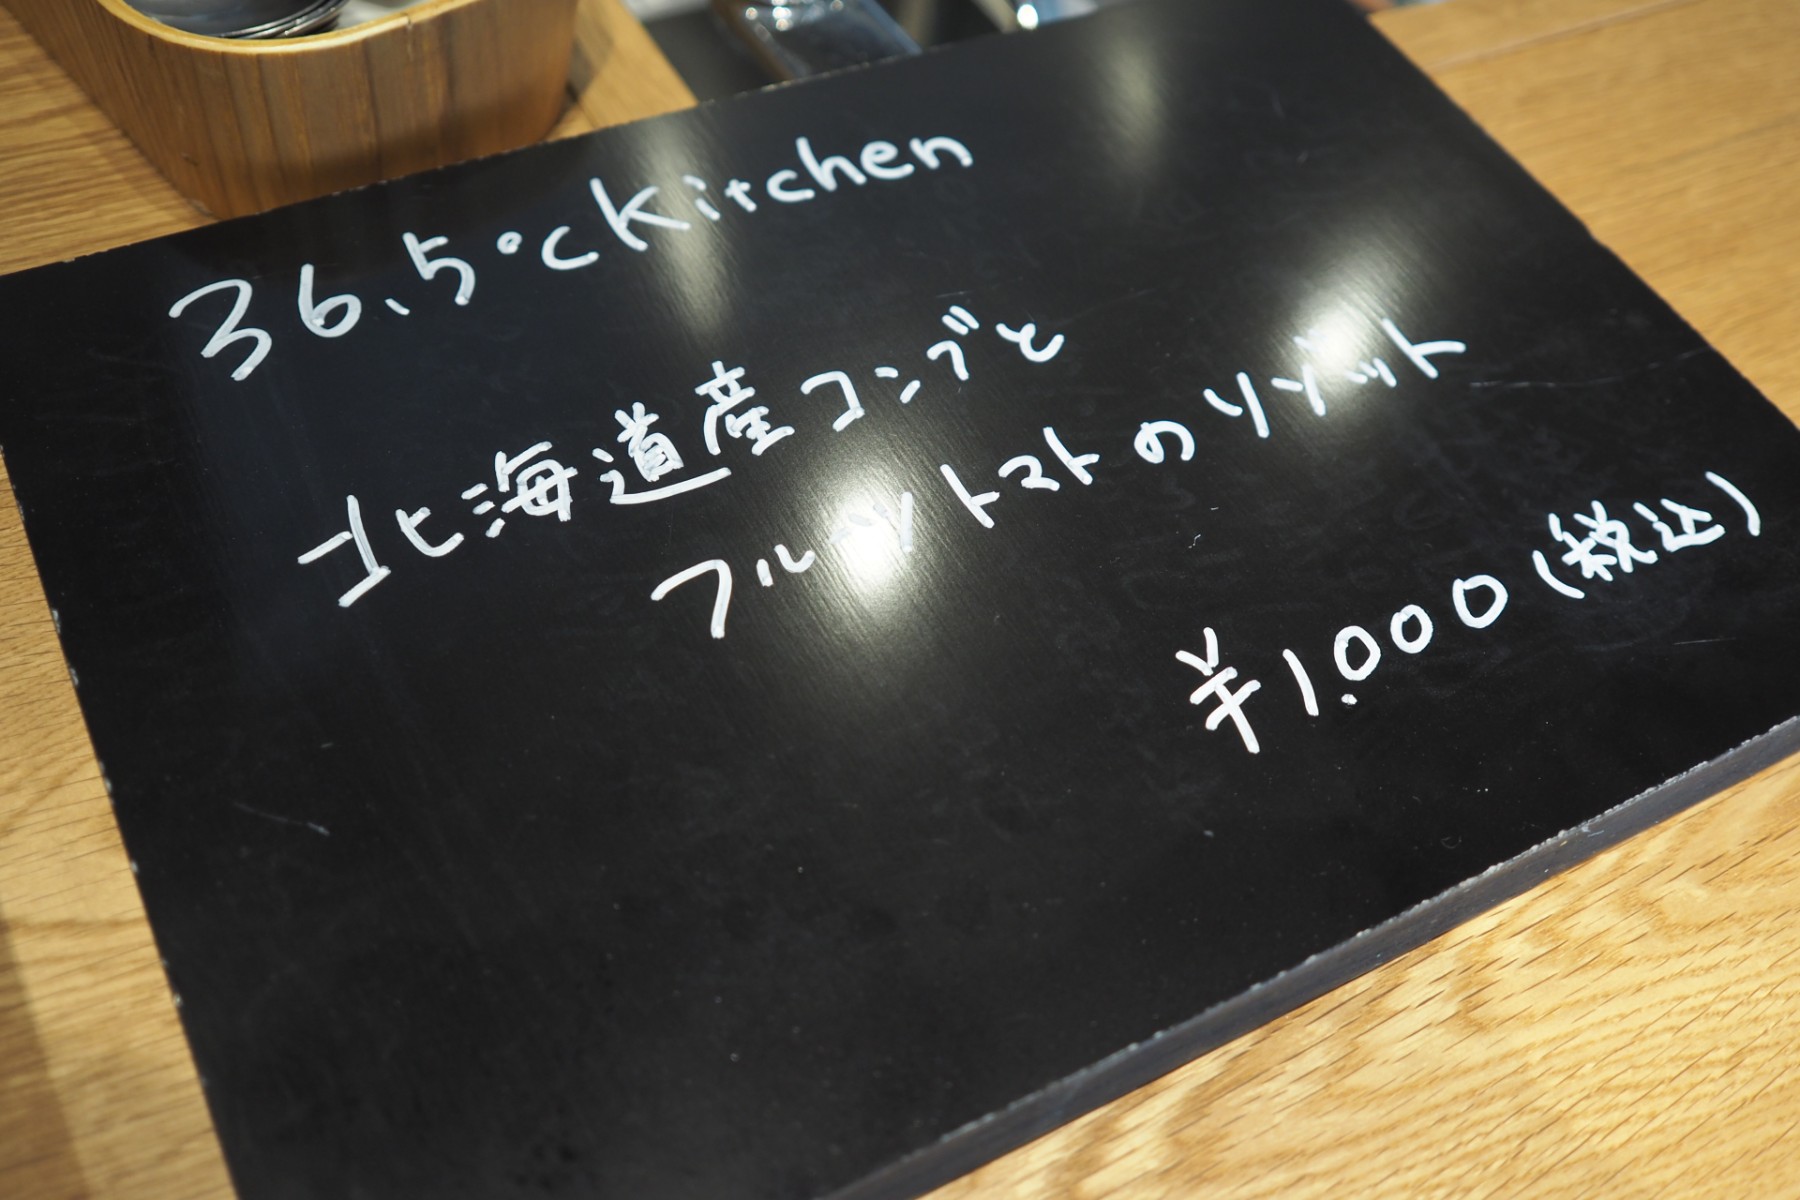 36.5℃ Kitchen
北海道産コンブと
フルーツトマトのリゾット
¥1,000(税込)